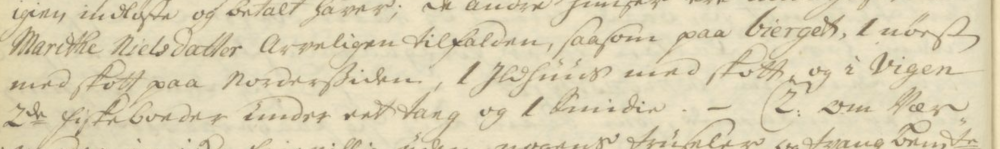 igien indløste og betalt haver; de andre
Marithe Niels datter Arveligen tilfalden, saasom paa bierget, 1 nøest
med skott paa Nordersiden, 1 Ildhuus med skott, og i Vigen
2de fiskeboeder under eet tag og 1 Smidie. – (2: om Vær